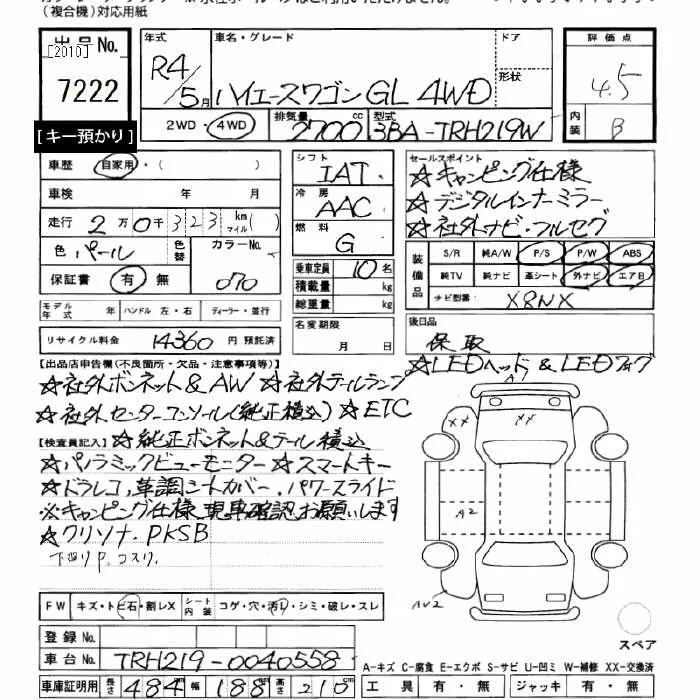 （複合機）対応用紙
出品No. 年式 車名・グレード ドア 評価点
[2010] R4/5月 ハイエースワゴンGL 4WD 形状 4.5
7222 2WD・4WD 排気量 2700cc 型式 3BA-TRH219W 内装 B
[キー預かり]
車歴 自家用・( ) シフト IAT セールスポイント
車検 年 月 冷房 AAC ☆キャンピング仕様
走行 2万0千323km(マイル) 燃料 G ☆デジタルインナーミラー
☆社外ナビ・フルセグ
色 パール 色替 カラーNo. 070 乗車定員 10名 装備品 S/R 純A/W P/S P/W ABS
保証書 有・無 積載量 kg 純TV 純ナビ 革シート 外ナビ エアB
総重量 kg ナビ型番 X8NX
モデル年式 年 ハンドル 左・右 ディーラー・並行 名変期限 月 日 後日品
リサイクル料金 14360 円 預託済 保 取
☆LEDヘッド&LEDフォグ
【出品店申告欄(不良箇所・欠品・注意事項等)】 A1
☆社外ボンネット&AW ☆社外テールランプ XX
☆社外センターコンソール(純正積込) ☆ETC
【検査員記入】☆純正ボンネット&テール積込
☆パノラミックビューモニター ☆スマートキー
☆ドラレコ、革調シートカバー、パワースライド
※キャンピング仕様、現車確認お願いします A2
☆クリソナ、PKSB
下廻りP、コスリ
FW キズ・トビ石・割レX シート内装 コゲ・穴・汚レ・シミ・破レ・スレ AU2
登録No. スペア
車台No. TRH219-0040558 A-キズ C-腐食 E-エクボ S-サビ U-凹ミ W-補修 XX-交換済
車庫証明用 長さ 484 幅 188 高さ 210 工具 有・無 ジャッキ 有・無